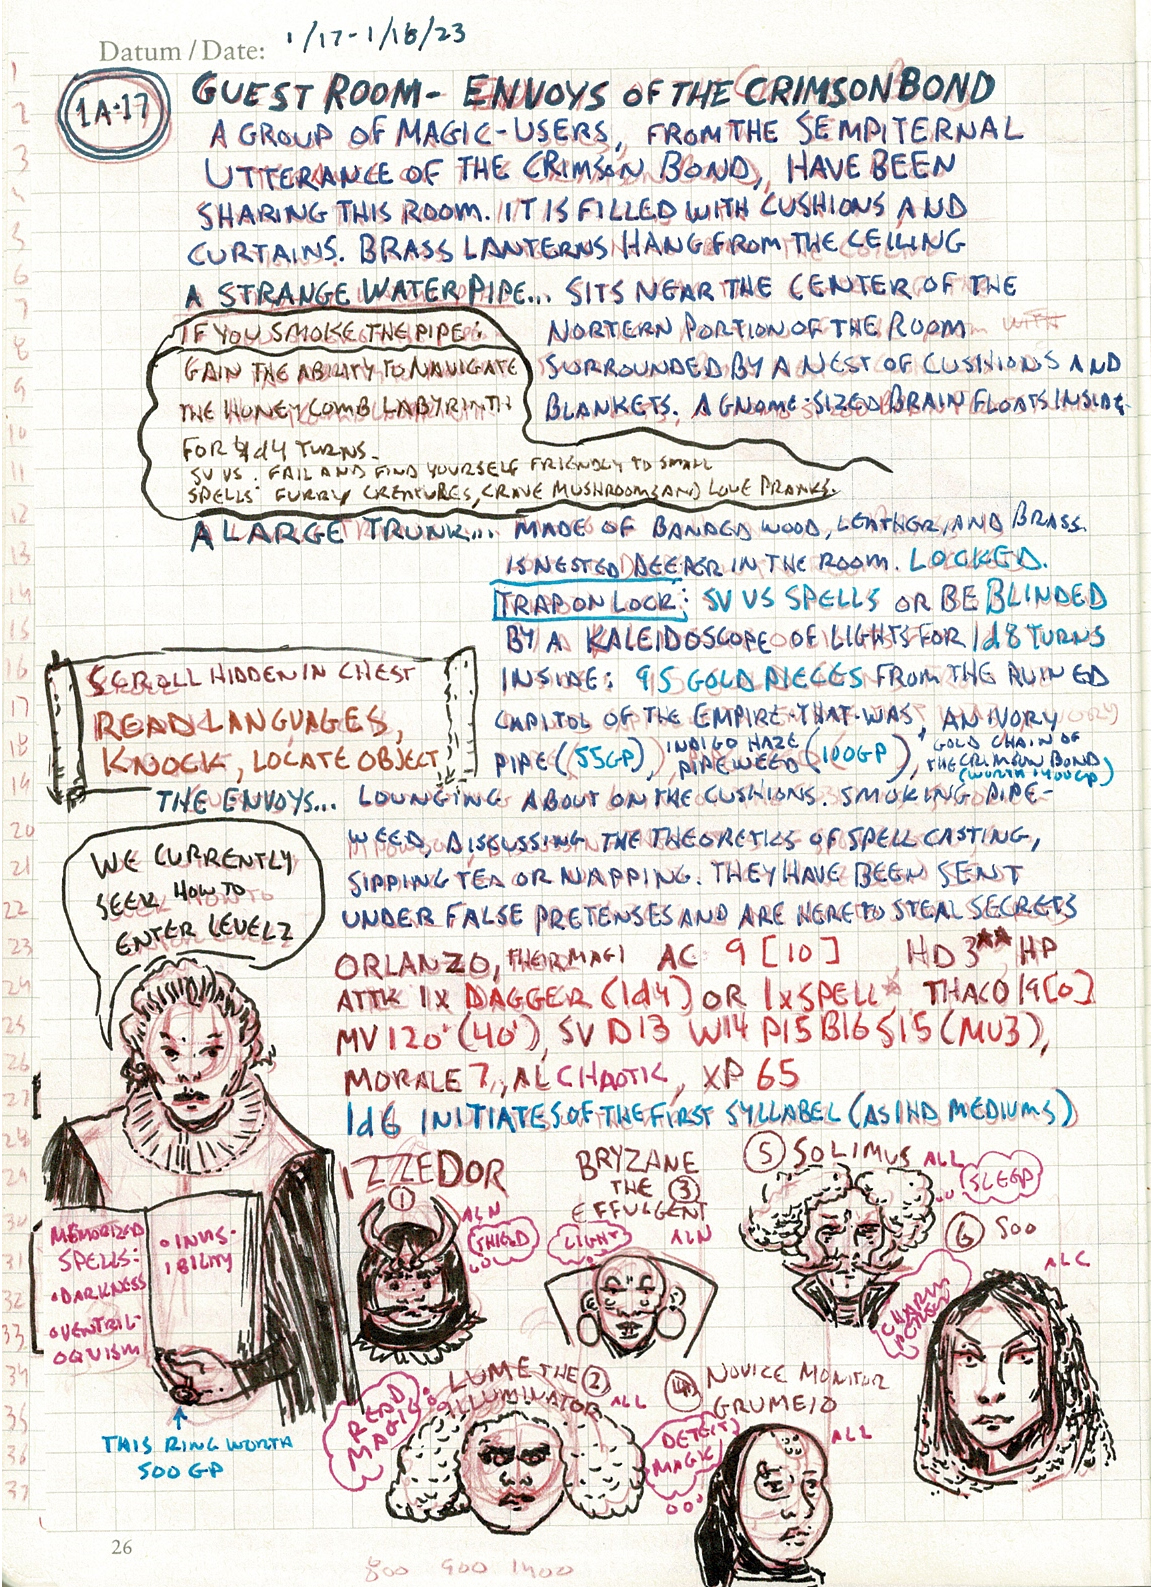 Datum / Date: 1/17-1/18/23
1A-17
GUEST ROOM - ENVOYS OF THE CRIMSON BOND
A GROUP OF MAGIC-USERS, FROM THE SEMPITERNAL
UTTERANCE OF THE CRIMSON BOND, HAVE BEEN
SHARING THIS ROOM. IT IS FILLED WITH CUSHIONS AND
CURTAINS. BRASS LANTERNS HANG FROM THE CEILING
A STRANGE WATER PIPE... SITS NEAR THE CENTER OF THE
NORTERN PORTION OF THE ROOM
SURROUNDED BY A NEST OF CUSHIONS AND
BLANKETS. A GNOME-SIZED BRAIN FLOATS INSIDE.
IF YOU SMOKE THE PIPE:
GAIN THE ABILITY TO NAVIGATE
THE HONEY COMB LABYRINTH
FOR 1d4 TURNS.
SV VS. FAIL AND FIND YOURSELF FRIENDLY TO SMALL
SPELLS: FURRY CREATURES, CRAVE MUSHROOMS AND LOVE PRANKS.
A LARGE TRUNK... MADE OF BANDED WOOD, LEATHER, AND BRASS
IS NESTED DEEPER IN THE ROOM. LOCKED.
TRAP ON LOCK: SV VS SPELLS OR BE BLINDED
BY A KALEIDOSCOPE OF LIGHTS FOR 1d8 TURNS
INSIDE: 95 GOLD PIECES FROM THE RUINED
CAPITOL OF THE EMPIRE-THAT-WAS, AN IVORY
PIPE (55GP), INDIGO HAZE PIPEWEED (100GP), + GOLD CHAIN OF THE CRIMSON BOND (WORTH 1400GP)
SCROLL HIDDEN IN CHEST
READ LANGUAGES,
KNOCK, LOCATE OBJECT
THE ENVOYS... LOUNGING ABOUT ON THE CUSHIONS. SMOKING PIPE-
WEED, DISCUSSING THE THEORETICS OF SPELL CASTING,
SIPPING TEA OR NAPPING. THEY HAVE BEEN SENT
UNDER FALSE PRETENSES AND ARE HERE TO STEAL SECRETS
WE CURRENTLY
SEEK HOW TO
ENTER LEVEL 2
ORLANZO, THERMAGI AC 9 [10] HD 3** HP
ATTK 1x DAGGER (1d4) OR 1x SPELL THACO 19[0]
MV 120' (40'), SV D13 W14 P15 B16 S15 (MU3),
MORALE 7, AL CHAOTIC, XP 65
1d6 INITIATES OF THE FIRST SYLLABEL (AS 1HD MEDIUMS)
IZZEDOR
1
ALN
SHIELD
BRYZANE
THE 3
EFFULGENT
LIGHT
ALN
5 SOLIMUS ALL
SLEEP
6 SOO
ALC
CHARM
PERSON
MEMORIZED
SPELLS:
• DARKNESS
• VENTRIL-
OQUISM
• INVIS-
IBILITY
THIS RING WORTH
500 GP
LUME THE 2
ILLUMINATOR ALL
READ
MAGIC
4 NOVICE MONITOR
GRUMEIO
ALL
DETECT
MAGIC
1
2
3
4
5
6
7
8
9
10
11
12
13
14
15
16
17
18
19
20
21
22
23
24
25
26
27
28
29
30
31
32
33
34
35
36
37
26
800 900 1400